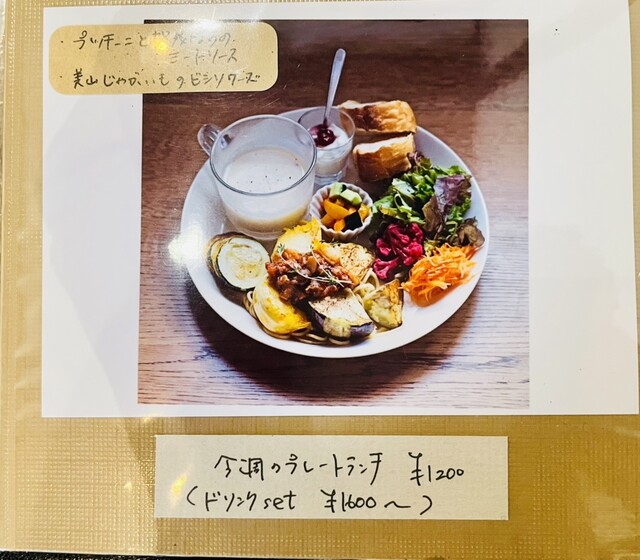 ・ズッキーニと
ミートソース
・美山じゃがいものビシソワーズ
今週のプレートランチ ¥1200
(ドリンクset ¥1600〜)